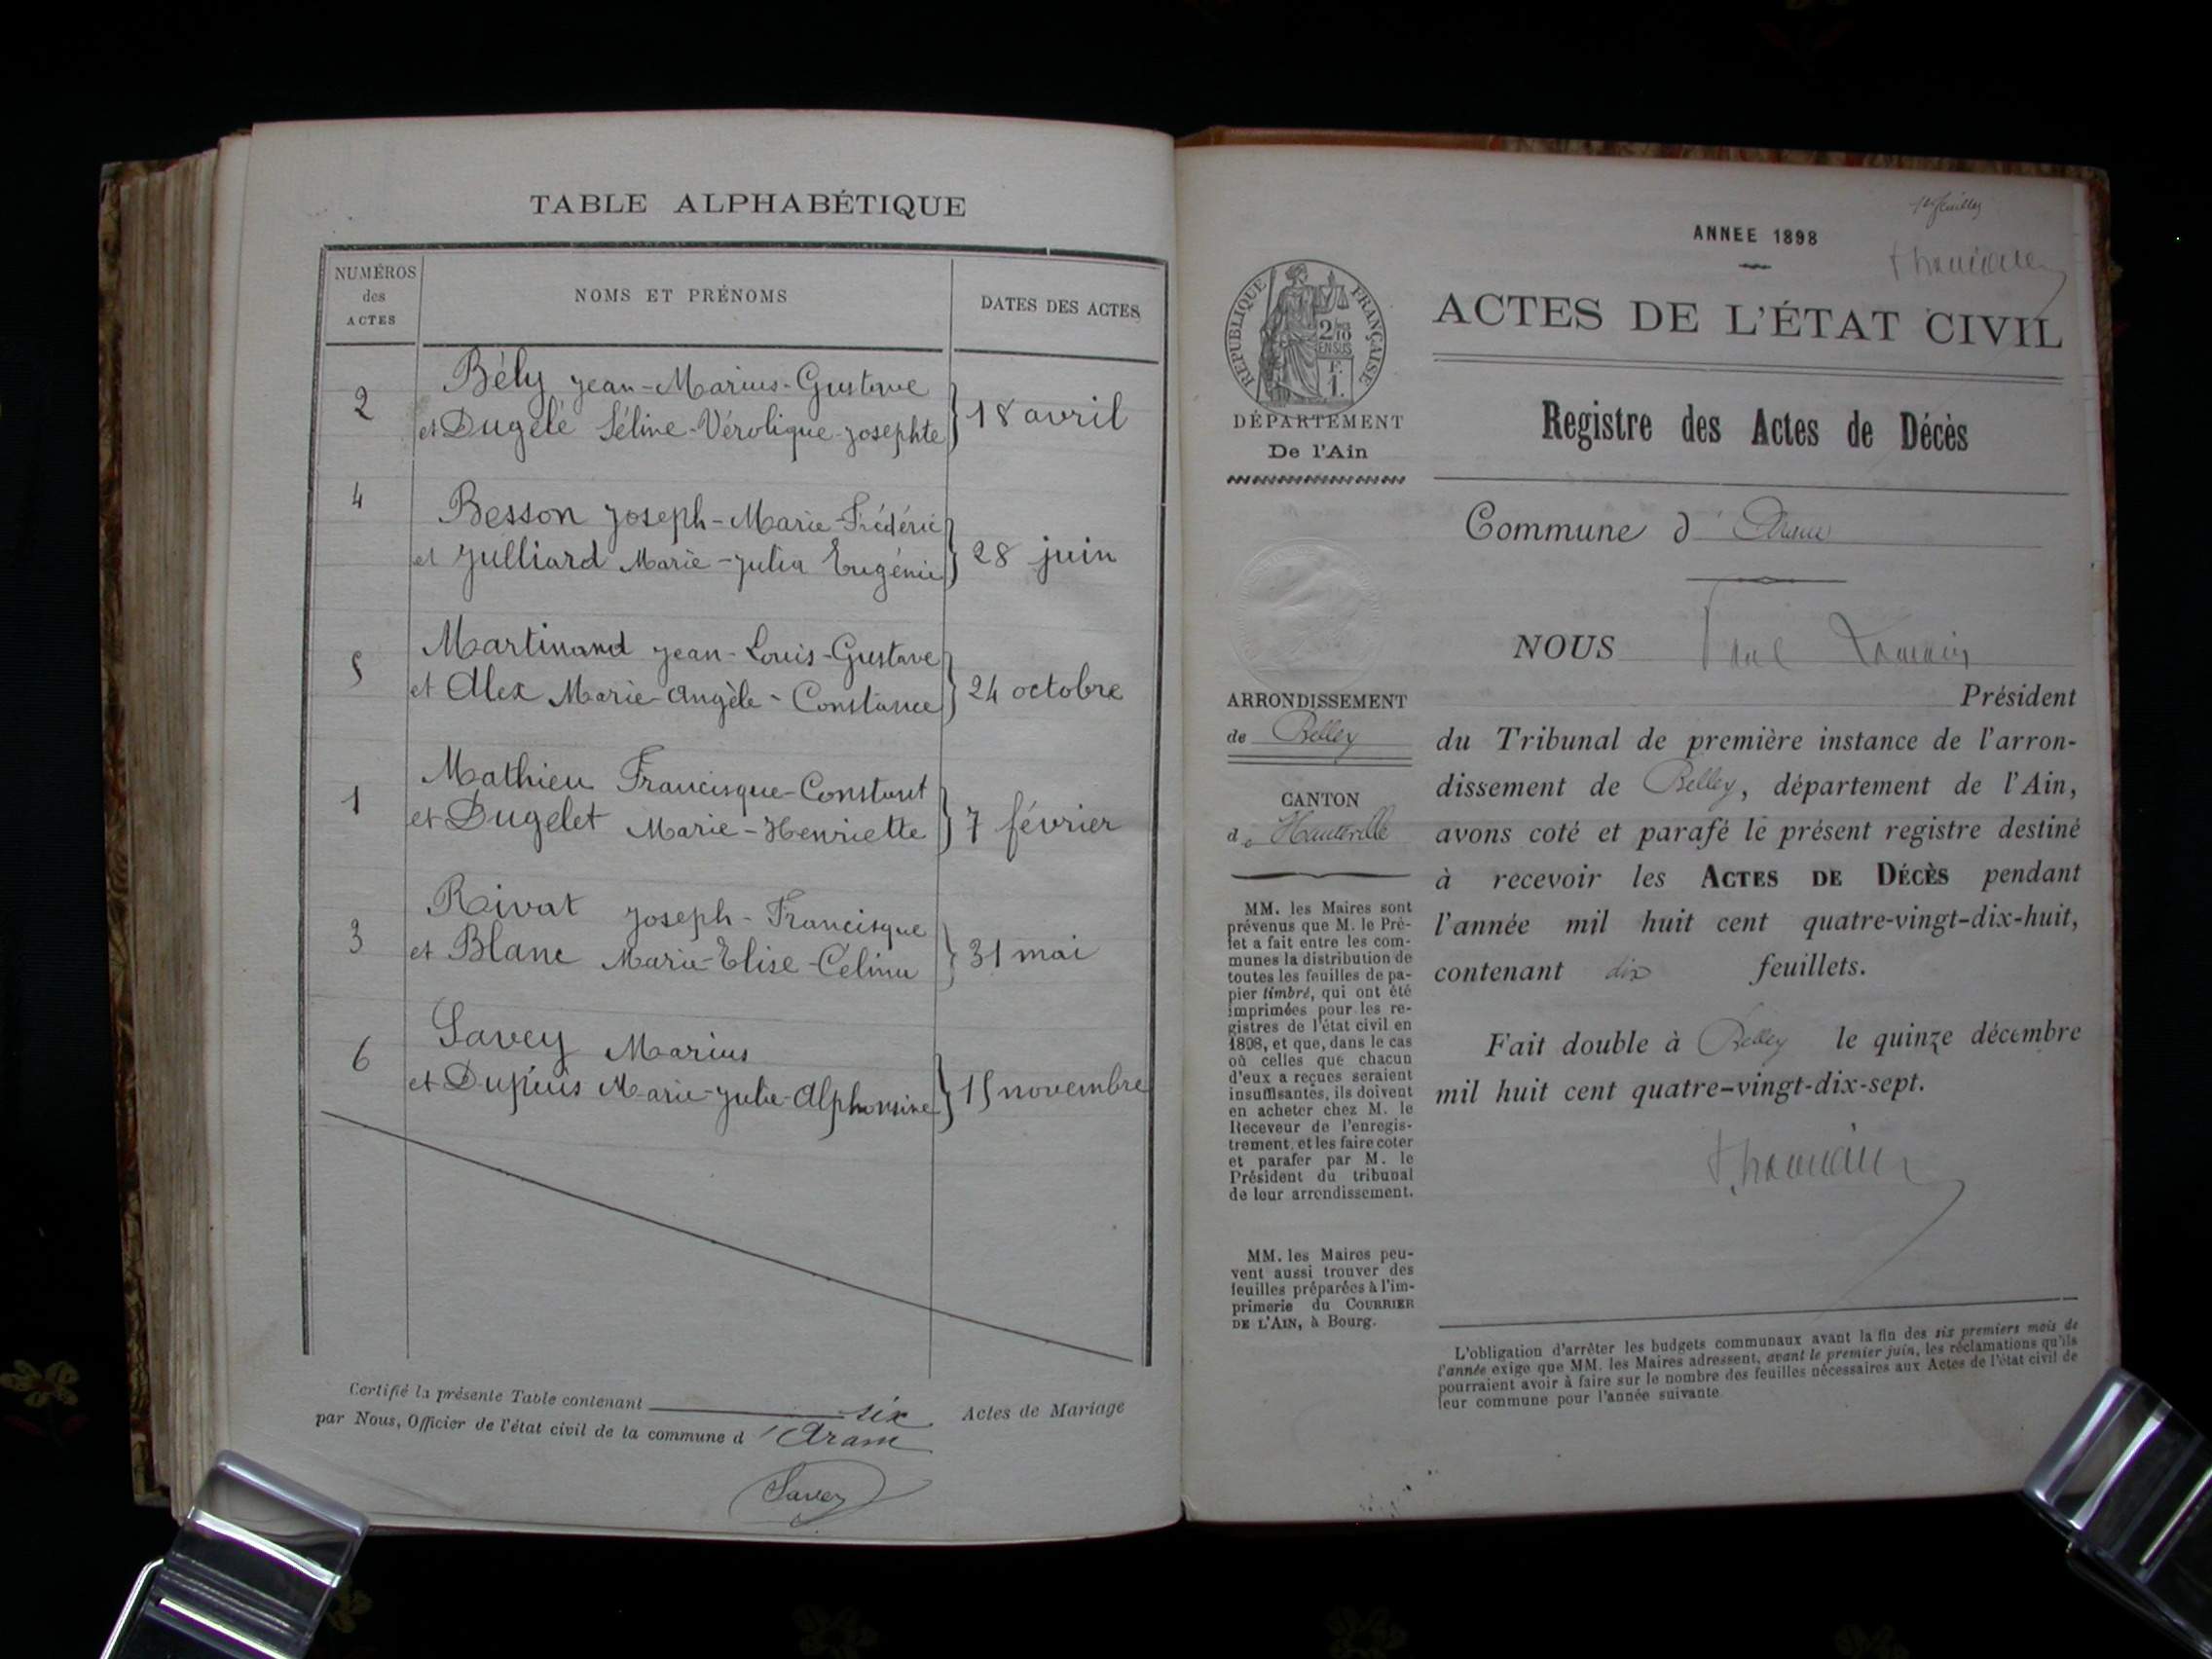 TABLE ALPHABÉTIQUE
NUMÉROS
des
ACTES
NOMS ET PRÉNOMS
DATES DES ACTES
2
Bély Jean-Marius-Gustave
et Dugelé Séline-Vérolique-Josephte
18 avril
4
Besson Joseph-Marie-Frédéric
et Julliard Marie-Julia Eugénie
28 juin
5
Martinand Jean-Louis-Gustave
et Alex Marie-Angèle-Constance
24 octobre
1
Mathieu Francisque-Constant
et Dugelet Marie-Henriette
7 février
3
Rivat Joseph-Francisque
et Blanc Marie-Elise-Célina
31 mai
6
Savey Marius
et Dupuis Marie-Julie-Alphonsine
15 novembre
Certifié la présente Table contenant six Actes de Mariage
par Nous, Officier de l'état civil de la commune d'Aranc
Savey
ANNEE 1898
RÉPUBLIQUE FRANÇAISE
2/10
EN SUS
F.
1.
ACTES DE L'ÉTAT CIVIL
DÉPARTEMENT
De l'Ain
Registre des Actes de Décès
Commune d'Aranc
NOUS Paul
Président
du Tribunal de première instance de l'arron-
dissement de Belley, département de l'Ain,
avons coté et parafé le présent registre destiné
à recevoir les ACTES DE DÉCÈS pendant
l'année mil huit cent quatre-vingt-dix-huit,
contenant dix feuillets.
Fait double à Belley le quinze décembre
mil huit cent quatre-vingt-dix-sept.
ARRONDISSEMENT
de Belley
CANTON
de Hauteville
MM. les Maires sont
prévenus que M. le Pré-
fet a fait entre les com-
munes la distribution de
toutes les feuilles de pa-
pier timbré, qui ont été
imprimées pour les re-
gistres de l'état civil en
1898, et que, dans le cas
où celles que chacun
d'eux a reçues seraient
insuffisantes, ils doivent
en acheter chez M. le
Receveur de l'enregis-
trement, et les faire coter
et parafer par M. le
Président du tribunal
de leur arrondissement.
MM. les Maires peu-
vent aussi trouver des
feuilles préparées à l'im-
primerie du COURRIER
DE L'AIN, à Bourg.
L'obligation d'arrêter les budgets communaux avant la fin des six premiers mois de
l'année exige que MM. les Maires adressent, avant le premier juin, les réclamations qu'ils
pourraient avoir à faire sur le nombre des feuilles nécessaires aux Actes de l'état civil de
leur commune pour l'année suivante